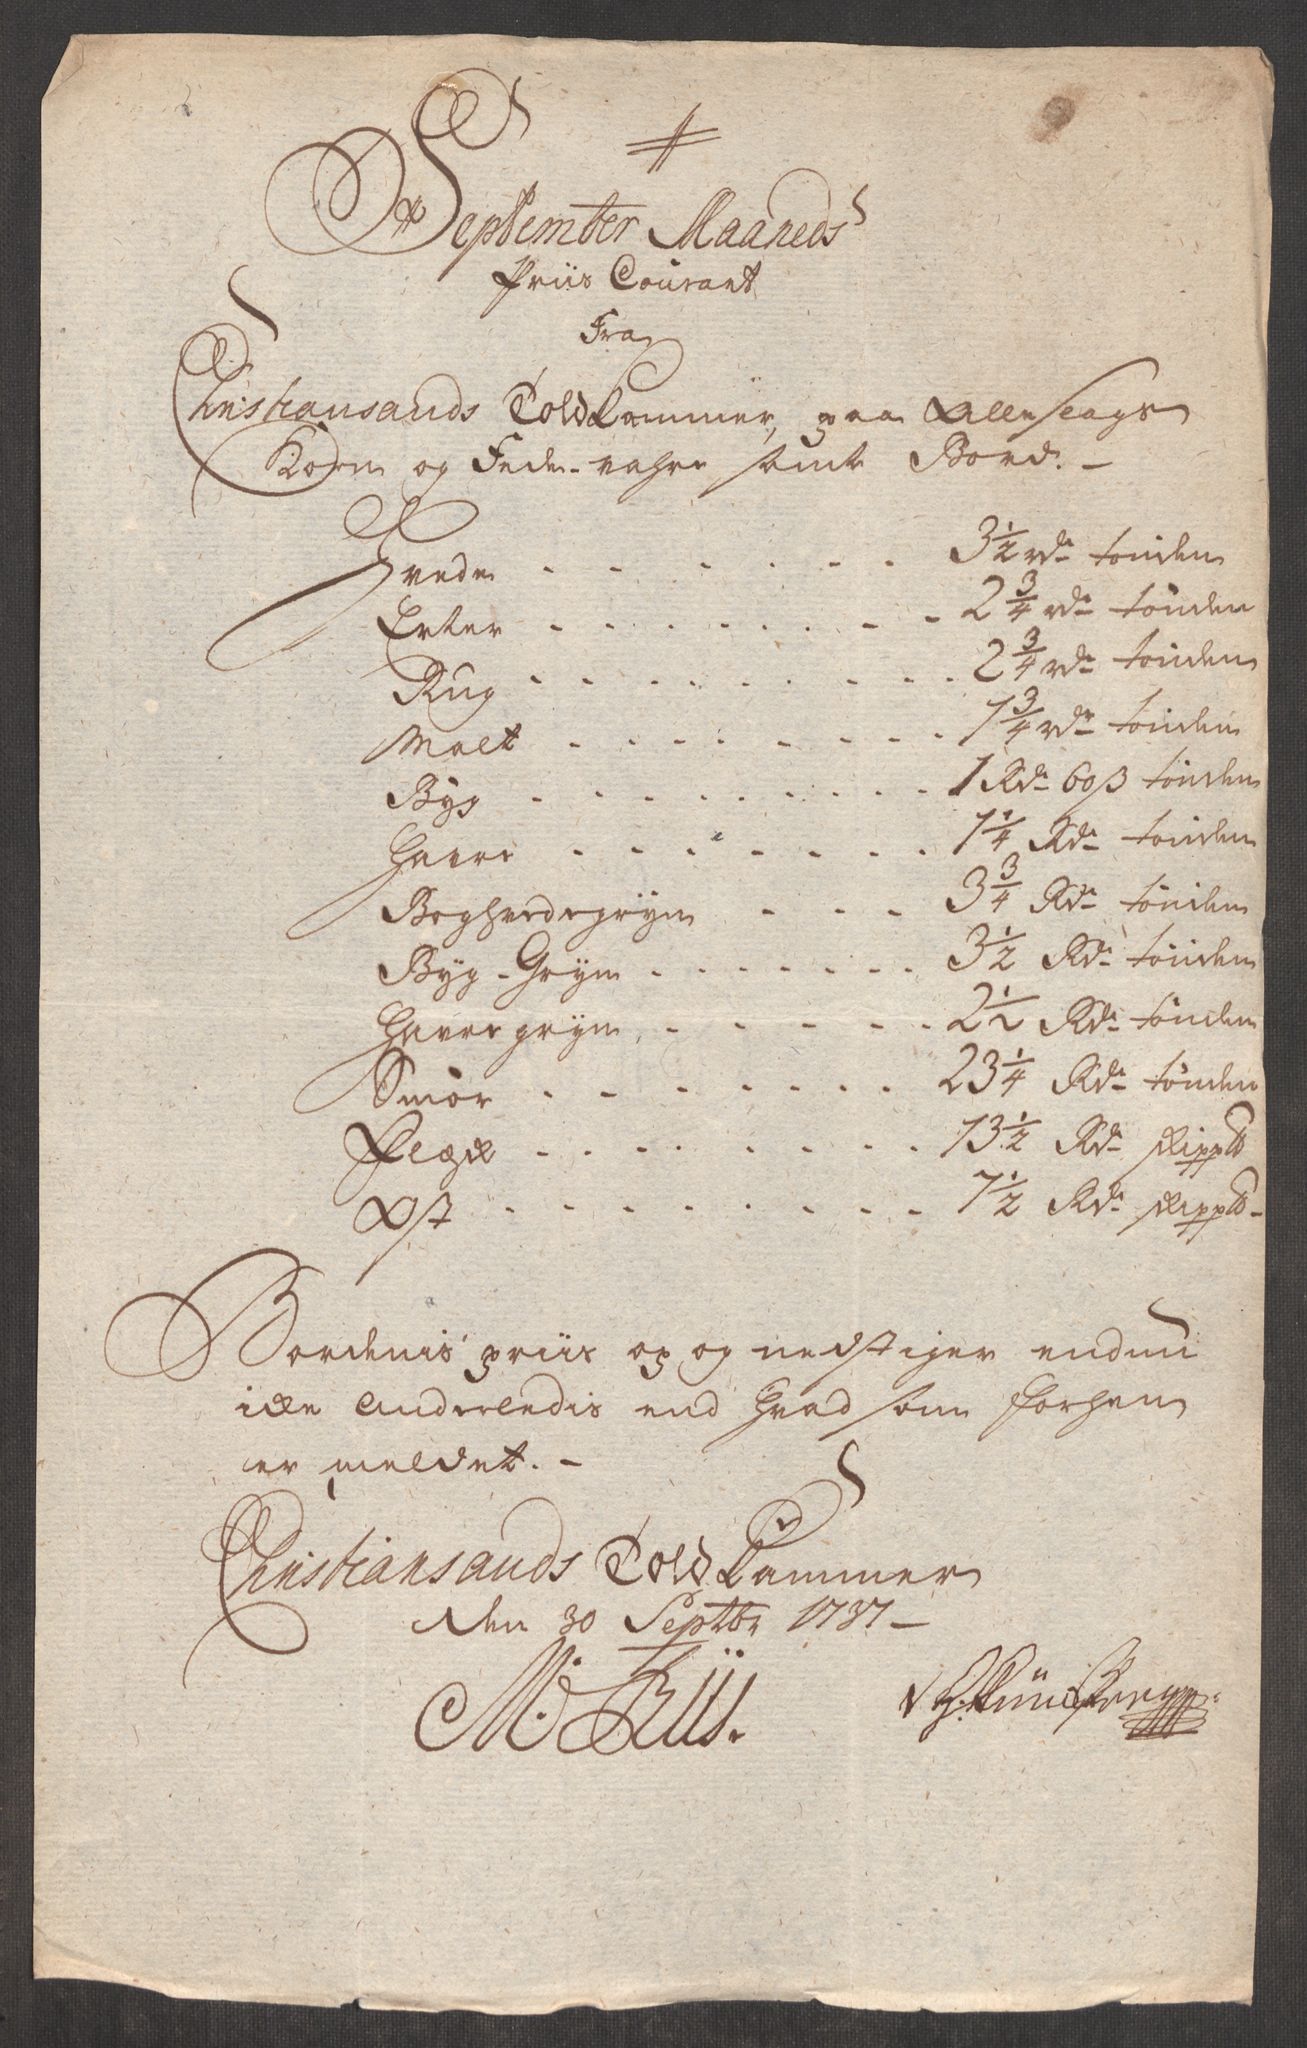 September Maaneds
Priis Courant
Fra
Christiansands Told Cammer, paa Alle slags
Korn og Fede-vahre samt Bord. -
Hvede . . . . . . 3 1/2 rdr tønden
Erter . . . . . . . . 2 3/4 rdr tønden
Rug . . . . . . . . 2 3/4 rdr tønden
Malt . . . . . . . . 1 3/4 rdr tønden
Byg . . . . . . . . 1 Rdr 60 ß tønden
Havre . . . . . . . 1 1/4 Rdr tønden
Boghvedegryn . . . 3 3/4 Rdr tønden
Byg-Gryn . . . . . . 3 1/2 Rdr tønden
Havre gryn . . . . . 2 1/2 Rdr tønden
Smør . . . . . . . 23 1/4 Rdr tønden
Flæsk . . . . . . . 13 1/2 Rdr skippd
Ost . . . . . . . . 7 1/2 Rdr skippd -
Bordenis priis op og nedstiger endnu
icke Anderledis end hvad som forhen
er meldet. -
Christiansands Told Cammer
den 30 Septbr 1737 -
M. Riis.